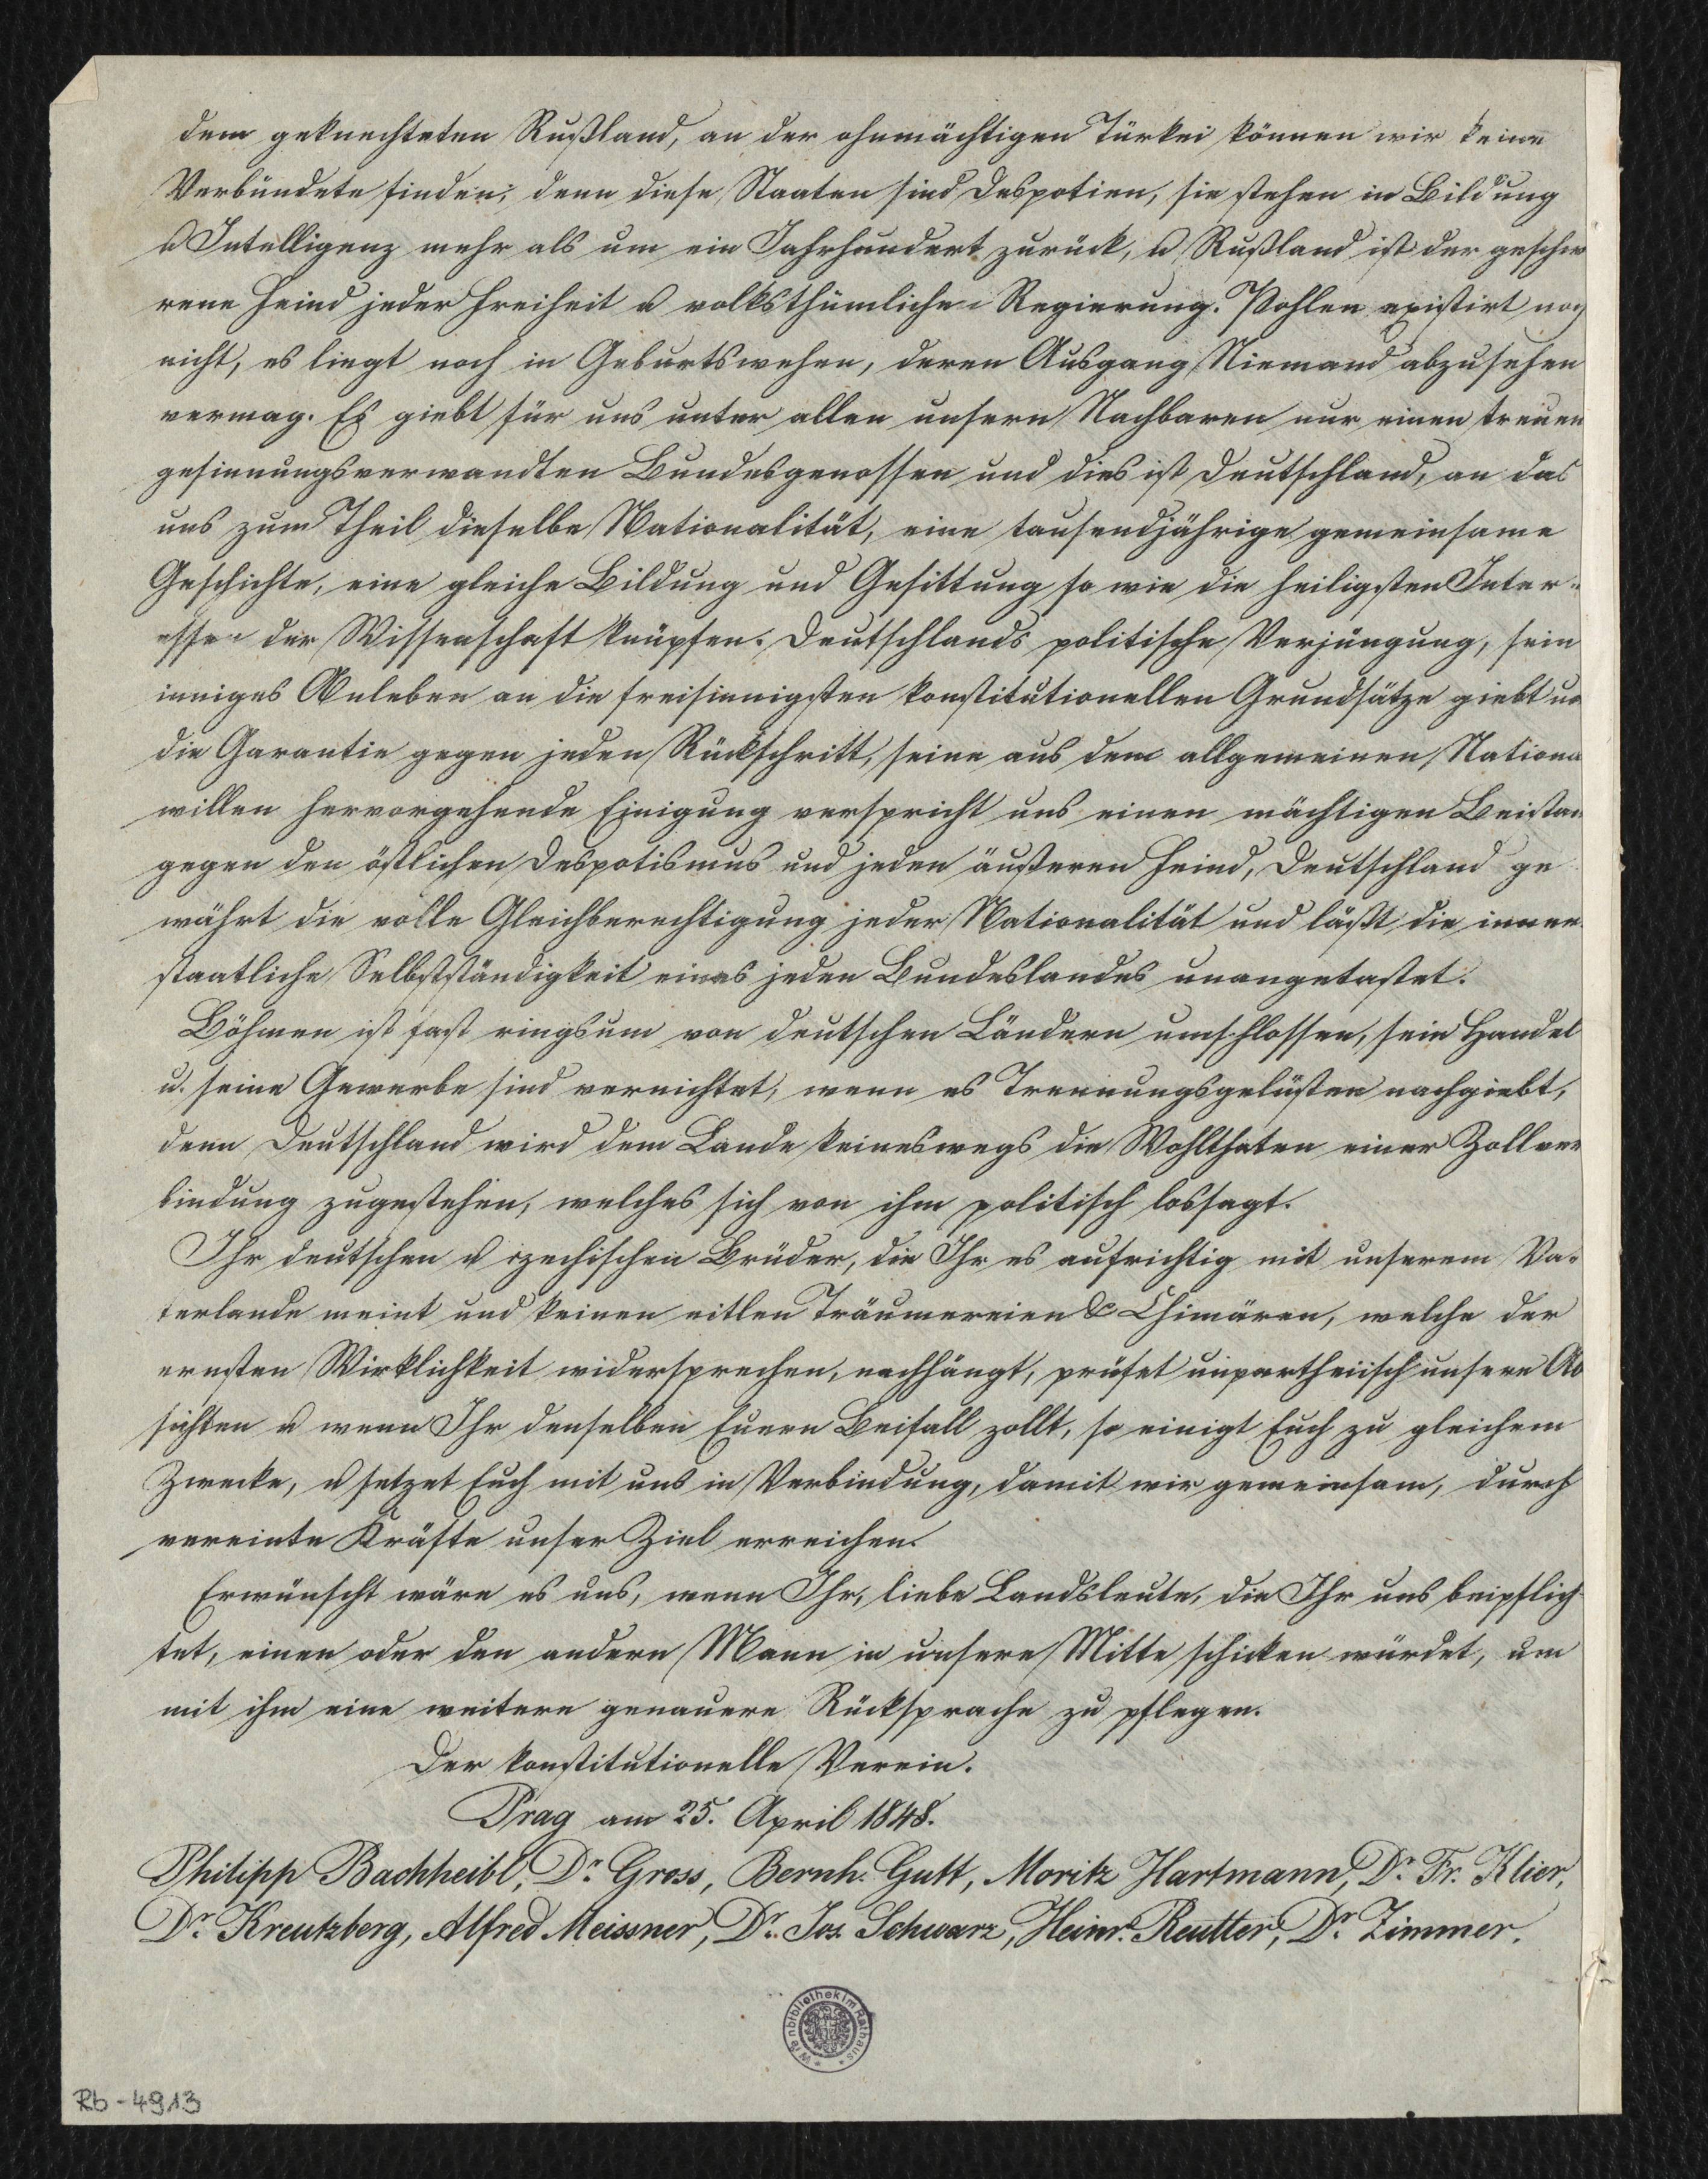 dem geknechteten Rußland, an der ohnmächtigen Türkei können wir keine
Verbündete finden; denn diese Staaten sind Despotien, sie stehen in Bildung
u Intelligenz mehr als um ein Jahrhundert zurück, u Rußland ist der geschw
rene Feind jeder Freiheit u volksthümlichen Regierung. Pohlen existirt noch
nicht, es liegt noch in Geburtswehen, deren Ausgang Niemand abzusehen
vermag. Es giebt für uns unter allen unsern Nachbaren nur einen treuen
gesinnungsverwandten Bundesgenossen und dies ist Deutschland, an das
uns zum Theil dieselbe Nationalität, eine tausendjährige gemeinsame
Geschichte, eine gleiche Bildung und Gesittung so wie die heiligsten Inter-
essen der Wissenschaft knüpfen. Deutschlands politische Verjüngung, sein
inniges Anleben an die freisinnigsten konstitutionellen Grundsätze giebt un
die Garantie gegen jeden Rückschritt, seine aus dem allgemeinen Nationa
willen hervorgehende Einigung verspricht uns einen mächtigen Beistan
gegen den östlichen Despotismus und jeden äußeren Feind, Deutschland ge
währt die volle Gleichberechtigung jeder Nationalität und läßt die innere
staatliche Selbstständigkeit eines jeden Bundeslandes unangetastet.
Böhmen ist fast ringsum von deutschen Ländern umschlossen, sein Handel
u. seine Gewerbe sind vernichtet, wenn es Trennungsgelüsten nachgiebt,
denn Deutschland wird dem Lande keineswegs die Wohlthaten einer Zollver
bindung zugestehen, welches sich von ihm politisch lossagt.
Ihr deutschen u czechischen Brüder, die Ihr es aufrichtig mit unserem Va-
terlande meint und keinen eitlen Träumereien & Chimären, welche der
ernsten Wirklichkeit widersprechen, nachhängt, prüfet unpartheiisch unsere Ab
sichten u wenn Ihr denselben Euern Beifall zollt, so einigt Euch zu gleichem
Zwecke, u setzet Euch mit uns in Verbindung, damit wir gemeinsam, durch
vereinte Kräfte unser Ziel erreichen.
Erwünscht wäre es uns, wenn Ihr, liebe Landsleute, die Ihr uns beipflich
tet, einen oder den andern Mann in unsere Mitte schicken würdet, um
mit ihm eine weitere genauere Rücksprache zu pflegen.
Der konstitutionelle Verein.
Prag am 25. April 1848.
Philipp Bachheibl, Dr. Gross, Bernh. Gutt, Moritz Hartmann, Dr. Fr. Klier,
Dr. Kreutzberg, Alfred Meissner, Dr. Jos. Schwarz, Heinr. Reutter, Dr. Zimmer.
Wienbibliothek im Rathaus
Rb-4913